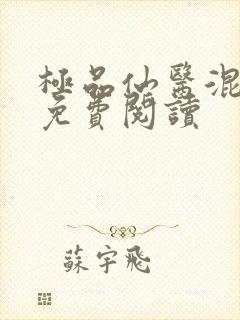 極品仙醫混
免費閱讀
蘇宇飛